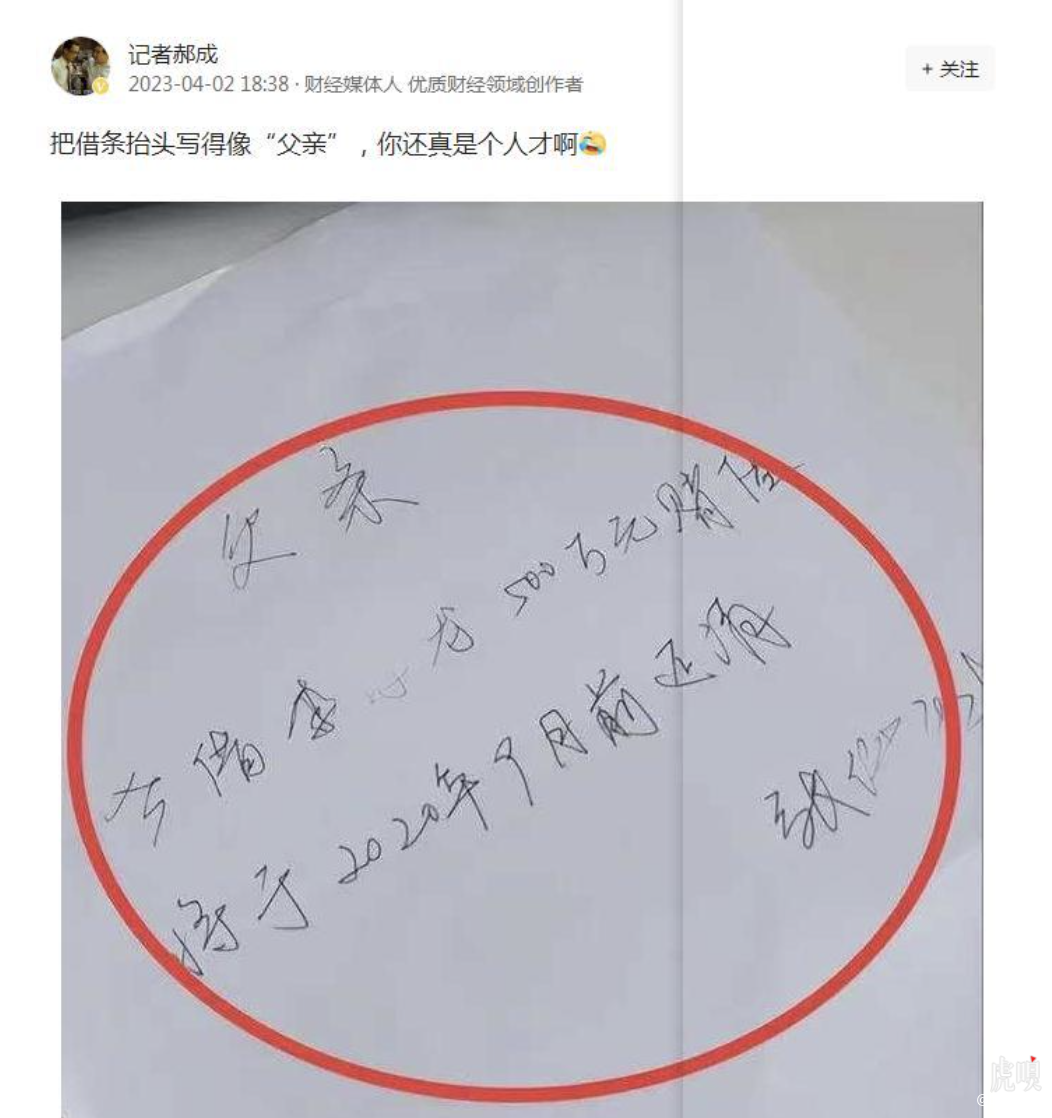 记者郝成
2023-04-02 18:38 · 财经媒体人 优质财经领域创作者
+ 关注
把借条抬头写得像“父亲”，你还真是个人才啊
欠条
今借李 龙500万元赌债
将于2020年9月前还清
张
虎呗